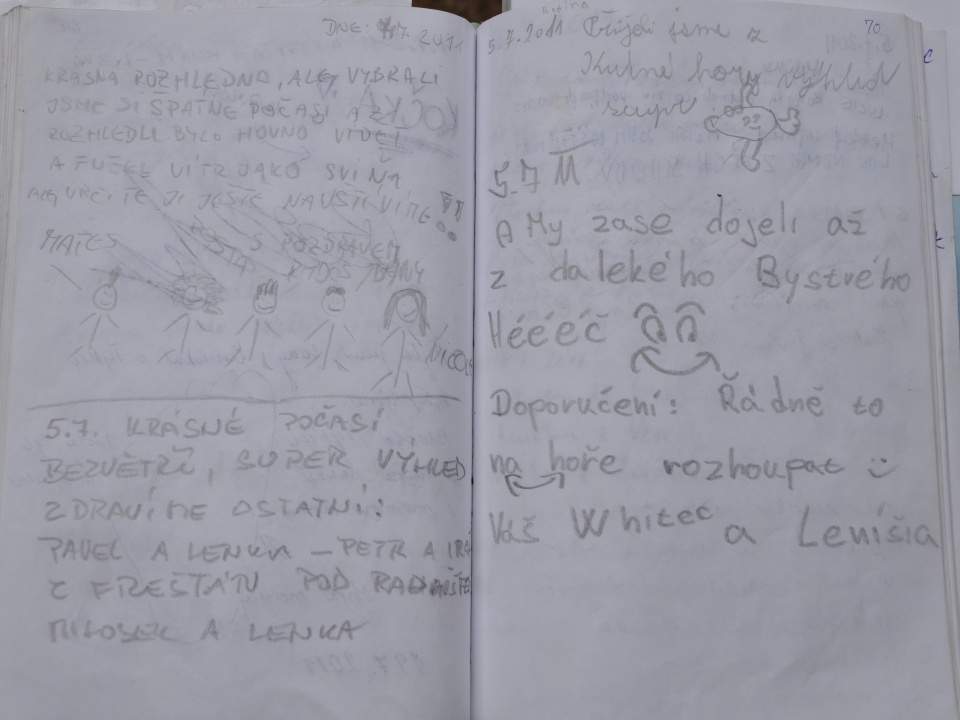 DNE: 4.7. 2011
KRÁSNÁ ROZHLEDNA, ALE VYBRALI
JSME SI ŠPATNÉ POČASÍ Z
ROZHLEDU BYLO HOVNO VIDĚT
A FUČEL VÍTR JAKO SVIŇA
ALE URČITĚ JI JEŠTĚ NAVŠTÍVÍME!!
S POZDRAVEM
MATES
NICOL
5.7. KRÁSNÉ POČASÍ
BEZVĚTŘÍ, SUPER VÝHLED
ZDRAVÍME OSTATNÍ:
PAVEL A LENKA – PETR A
Z FREŠTÁTU POD RADHOŠTĚ
MILOSEK A LENKA
70
5.7.2011 Přijeli jsme z
Kutné hory výhled
5.7
A My zase dojeli až
z dalekého Bystrého
Hééééč
Doporučení: Řádně to
na hoře rozhoupat :)
Váš Whitec a Leníšia